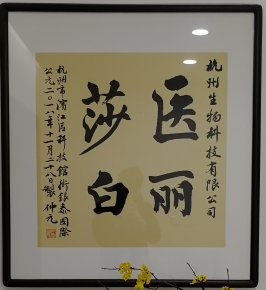 杭州生物科技有限公司
医丽
莎白
杭州市滨江区科技馆街銀泰国際
公元二〇一八年十一月二十八日製 仲元